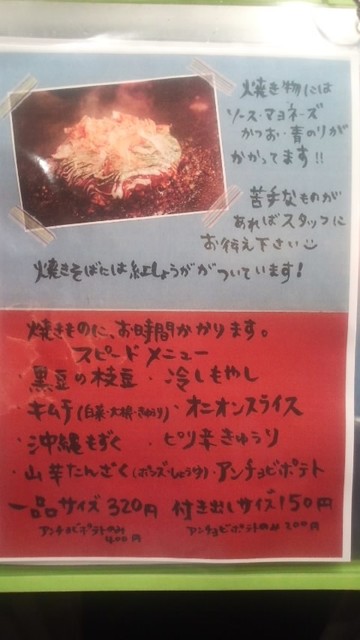 焼き物には
ソース・マヨネーズ
かつお・青のりが
かかってます!!
苦手なものが
あればスタッフに
お伝え下さい
焼きそばには紅しょうががついています!
焼きものに、お時間かかります。
スピードメニュー
・黒豆の枝豆 ・冷しもやし
・キムチ(白菜・大根・きゅうり)・オニオンスライス
・沖縄もずく ・ピリ辛きゅうり
・山芋たんざく(ポンズ・しょうゆ)・アンチョビポテト
一品サイズ 320円 付き出しサイズ 150円
アンチョビポテトのみ 400円 アンチョビポテトのみ 200円